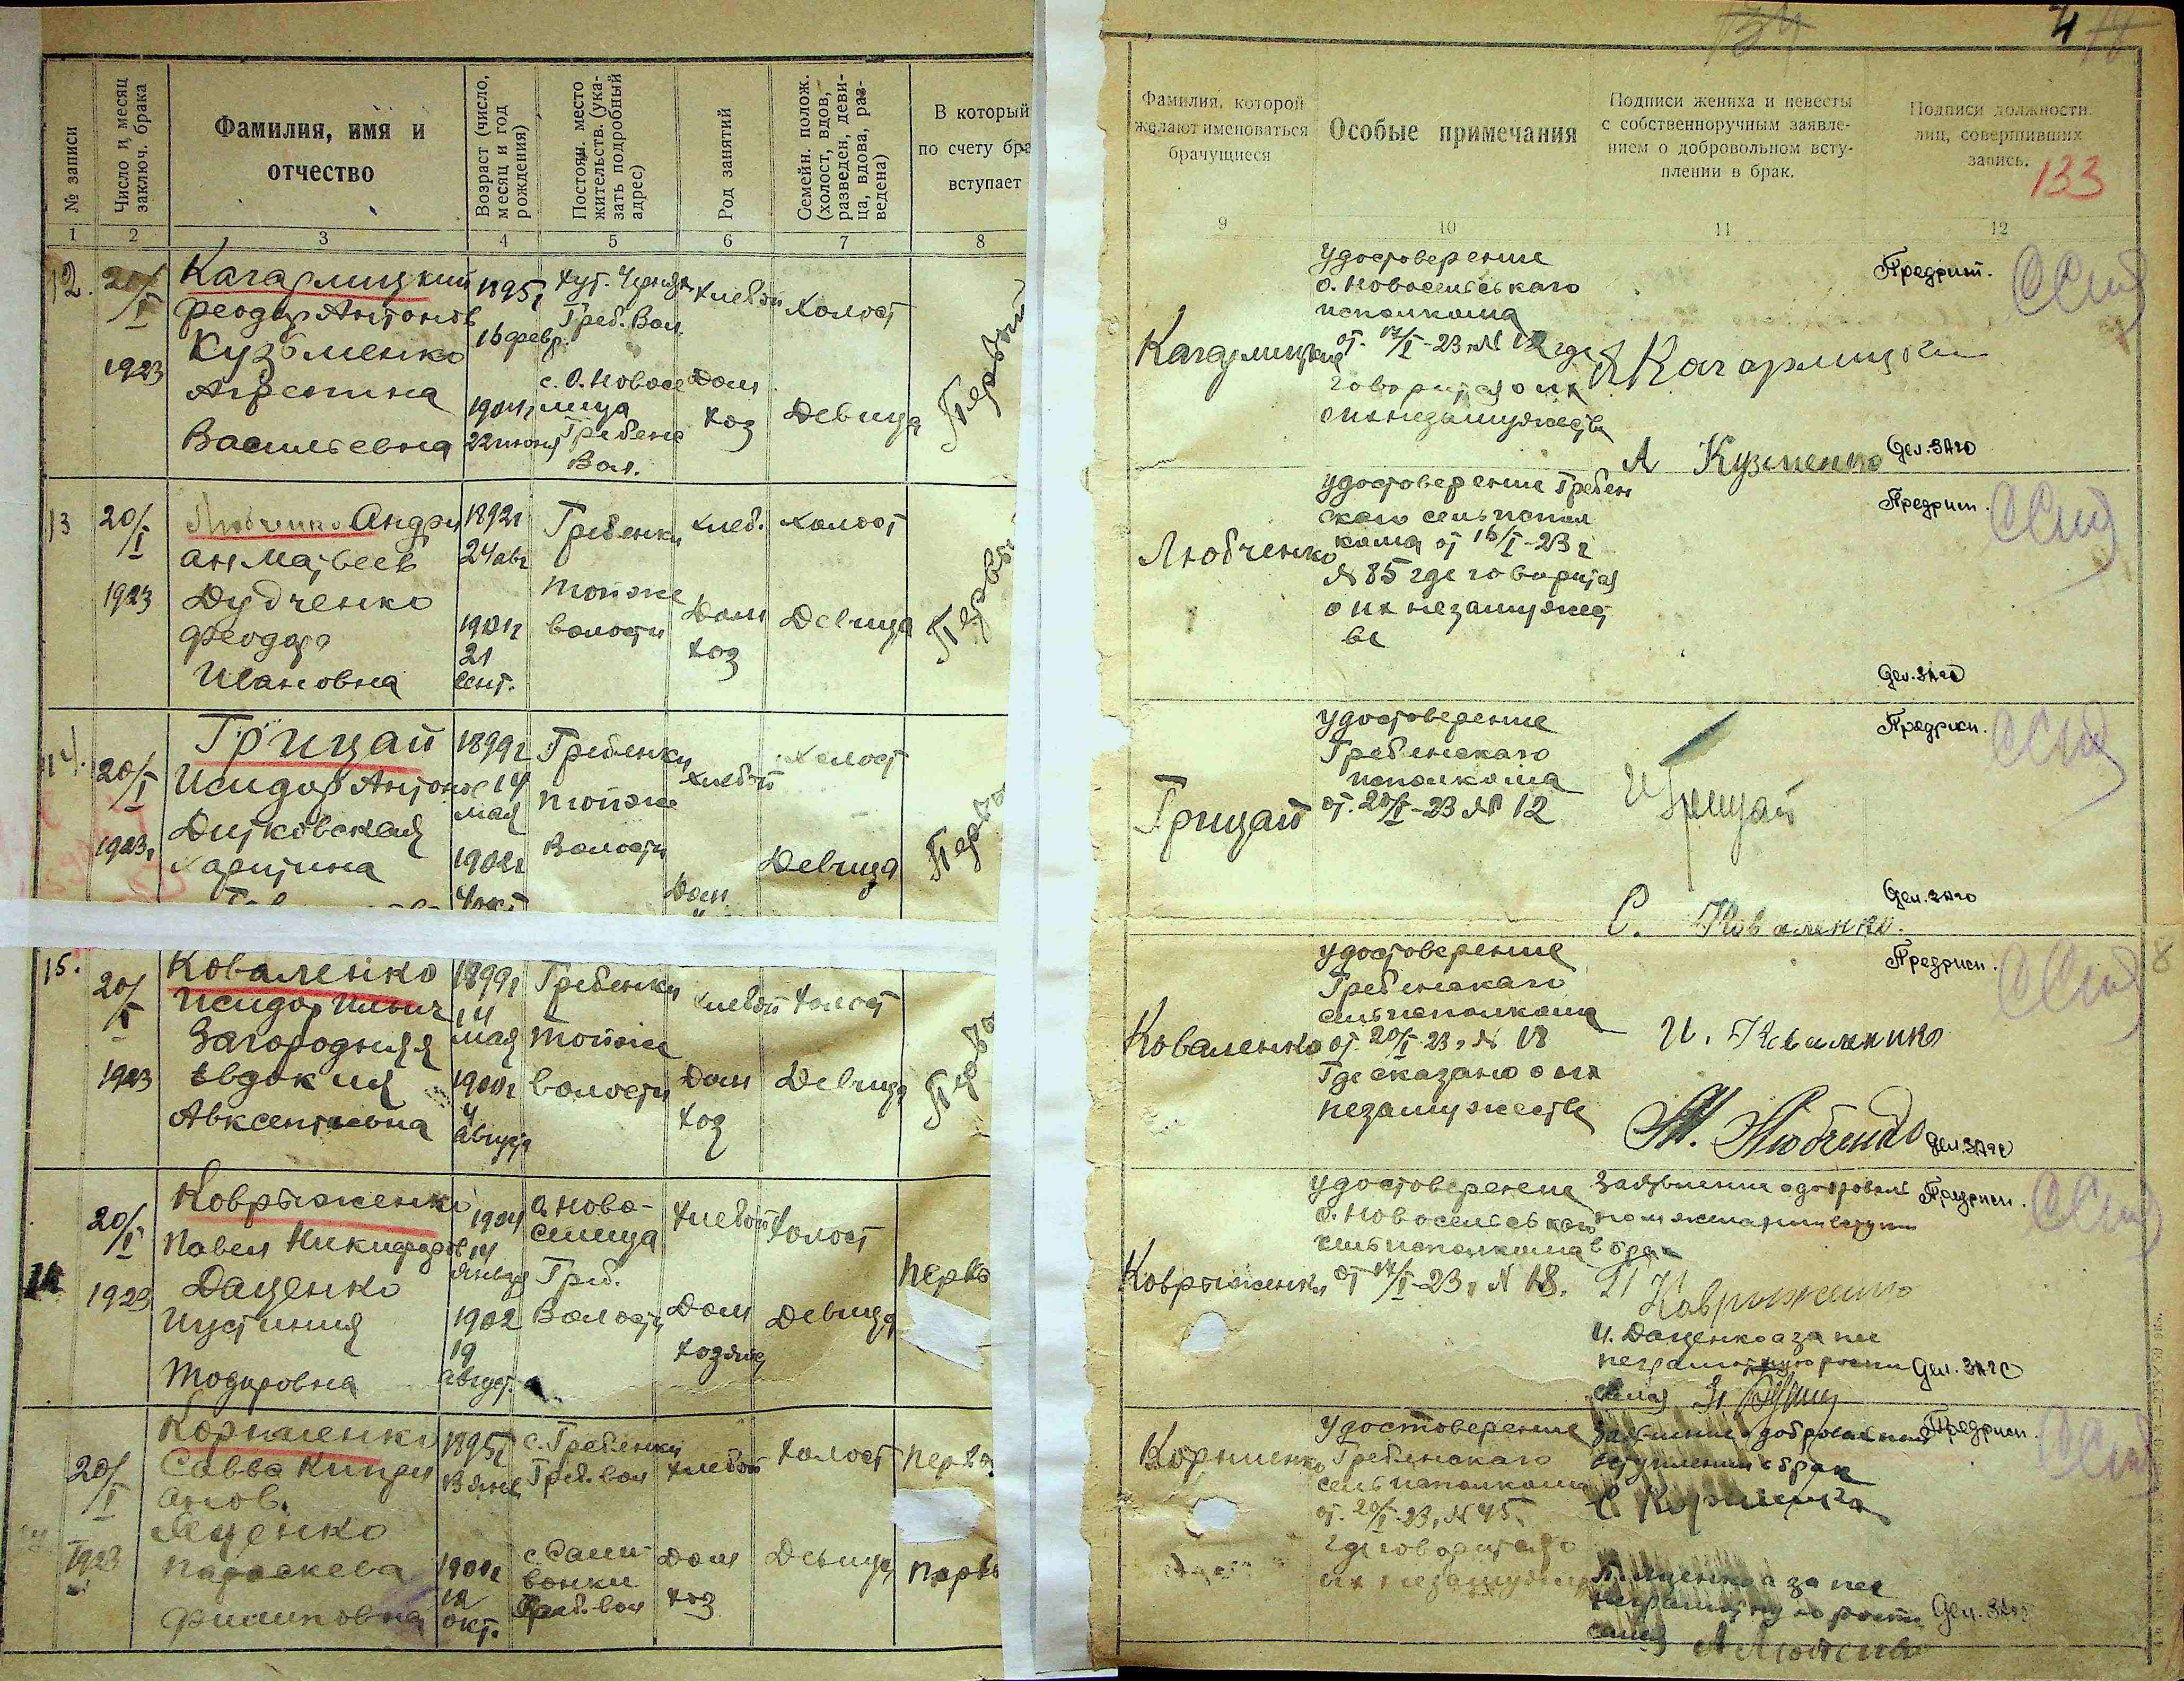 № записи
Число и месяц
заключ. брака
Фамилия, имя и
отчество
Возраст (число,
месяц и год
рождения)
Постоян. место
жительств. (ука-
зать подробный
адрес)
Род занятий
Семейн. полож.
(холост, вдов,
разведен, деви-
ца, вдова, раз-
ведена)
В который
по счету бра
вступает
1 2 3 4 5 6 7 8
12.
20/I
1923
Кагарлицкий
Феодор Антонов
Кузьменко
Агрепина
Васильевна
1895г
16 февр.
1904г
22 июня
Греб. Вол.
с. О. Новосе
лица
Гребенс
Вол.
Хлебоп
Дом
хоз
Холост
Девица
Первый
13
20/I
1923
Любченко Андри
ан Матвеев
Дудченко
Феодора
Ивановна
1892г
24 авг
1901г
21
сент.
Гребенки
тойже
волости
хлеб.
Дом
хоз
холост
Девица
14.
20/I
1923г
Грицай
Исидор Антонов
Дитковская
Харитина
1899г
14
мая
1902г
4 окт
Гребенки
тойже
Волости
хлебоп
Дом
Холост
Девица
15.
20/I
1923
Коваленко
Исидор Ильич
Загородняя
Евдокия
Авксентьевна
1899г
14
мая
1900г
4
августа
Гребенки
тойже
волости
хлебоп
Дом
хоз
холост
Девица
20/I
1923
Коврыженко
Павел Никифоров
Даценко
Иустиния
Тодоровна
1904
14
января
1902
19
август.
О. Ново-
селица
Греб.
Волости
хлебоп
Дом
хозяйс
холост
Девица
Перво
20/I
1923
Корниленко
Савва Кипри
анов.
Яценко
Параскева
Филиповна
1895г
1901г
12
окт.
с. Гребенки
Греб. вол
с. Сали-
вонки
Греб. вол
хлебоп
Дом
хоз
холост
Девица
Перво
Первы
4
133
Фамилия, которой
желают именоваться
брачущиеся
Особые примечания
Подписи жениха и невесты
с собственноручным заявле-
нием о добровольном всту-
плении в брак.
Подписи должностн.
лиц, совершивших
запись.
9 10 11 12
Кагарлицкие
удостоверение
О. Новосельськаго
исполкома
от 17/I-23 г № 12 где
говорится о их
о их незамужества
Кагарлицкий
А Кузменко
Предрит.
Дел. ЗАГО
Любченко
удостоверение Гребен
скаго сельиспол
кома от 16/I-23 г
№ 85 где говорится
о их незамужест
ве
Предрит.
Дел. ЗАГО
Грицай
удостоверение
Гребенскаго
исполкома
от. 20/I-23 № 12
И Грицай
С. Коваленко.
Предрит.
Дел. ЗАГО
Коваленко
удостоверение
Гребенскаго
сельисполкома
от 20/I-23 г № 18
Где сказано о их
незамужестве
И. Коваленико
М. Любченко
Предрисп.
Дел. ЗАГС
8
Коврыженки
удостоверение
О. Новосельськаго
сельисполкома
от 17/I-23 г N 18.
в брак
П Коврыженко
И. Даценко а за нее
неграмотную роспи
сался
Предрисп.
Дел. ЗАГС
Корниленко
удостоверение
Гребенскаго
сельисполкома
от. 20/I-23 г № 45.
где говорится о
их незамуж
вступлении в брак
П. Яценко а за нее
неграмотную роспи
сался
Предрисп.
Дел. ЗАГО